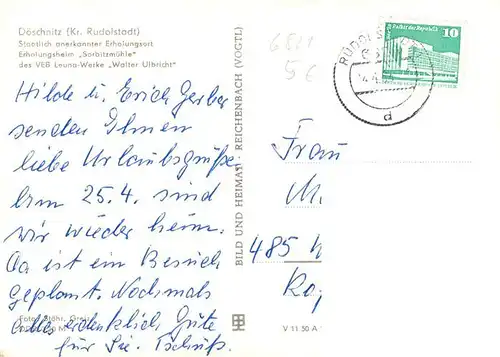 Döschnitz (Kr. Rudolstadt)
Staatlich anerkannter Erholungsort
Erholungsheim „Sorbitzmühle“
des VEB Leuna-Werke „Walter Ulbricht“
Hilde u. Erich Gerber
senden Ihnen
liebe Urlaubsgrüße.
Am 25.4. sind
wir wieder heim.
Da ist ein Besuch
geplant. Nochmals
alles erdenklich Gute
für Sie. Tschüß.
Foto: Stöhr, Greiz
BILD UND HEIMAT REICHENBACH (VOGTL)
V 11 50 A
Palast der Republik
10
RUDOLS
d
Frau
485